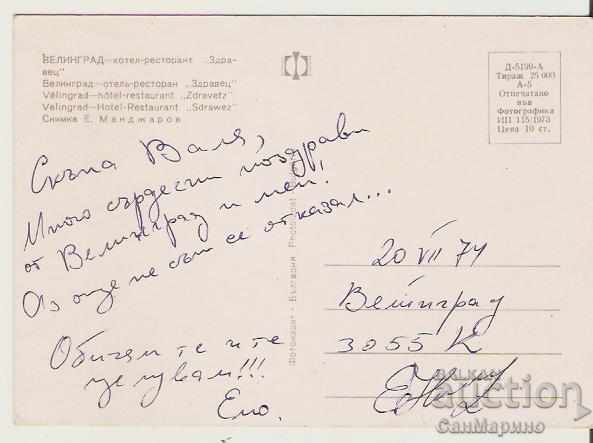 ВЕЛИНГРАД—хотел-ресторант „Здра-
вец"
Велинград—отель-ресторан „Здравец"
Vélingrad—hôtel-restaurant „Zdravetz"
Velingrad—Hotel-Restaurant „Sdrawez"
Снимка Е. Манджаров
Д-5199-А
Тираж 25 000
А-5
Отпечатано
във
Фотографика
ИП 115/1973
Цена 10 ст.
Скъпа Валя,
Много сърдечни поздрави
от Велинград и мен!
Аз още не съм се отказал...
Обичам те и те
целувам!!!
Емо.
Фотоиздат - България
20 VII 74
Велинград
3055 К
BALKAN
auction
СанМарино